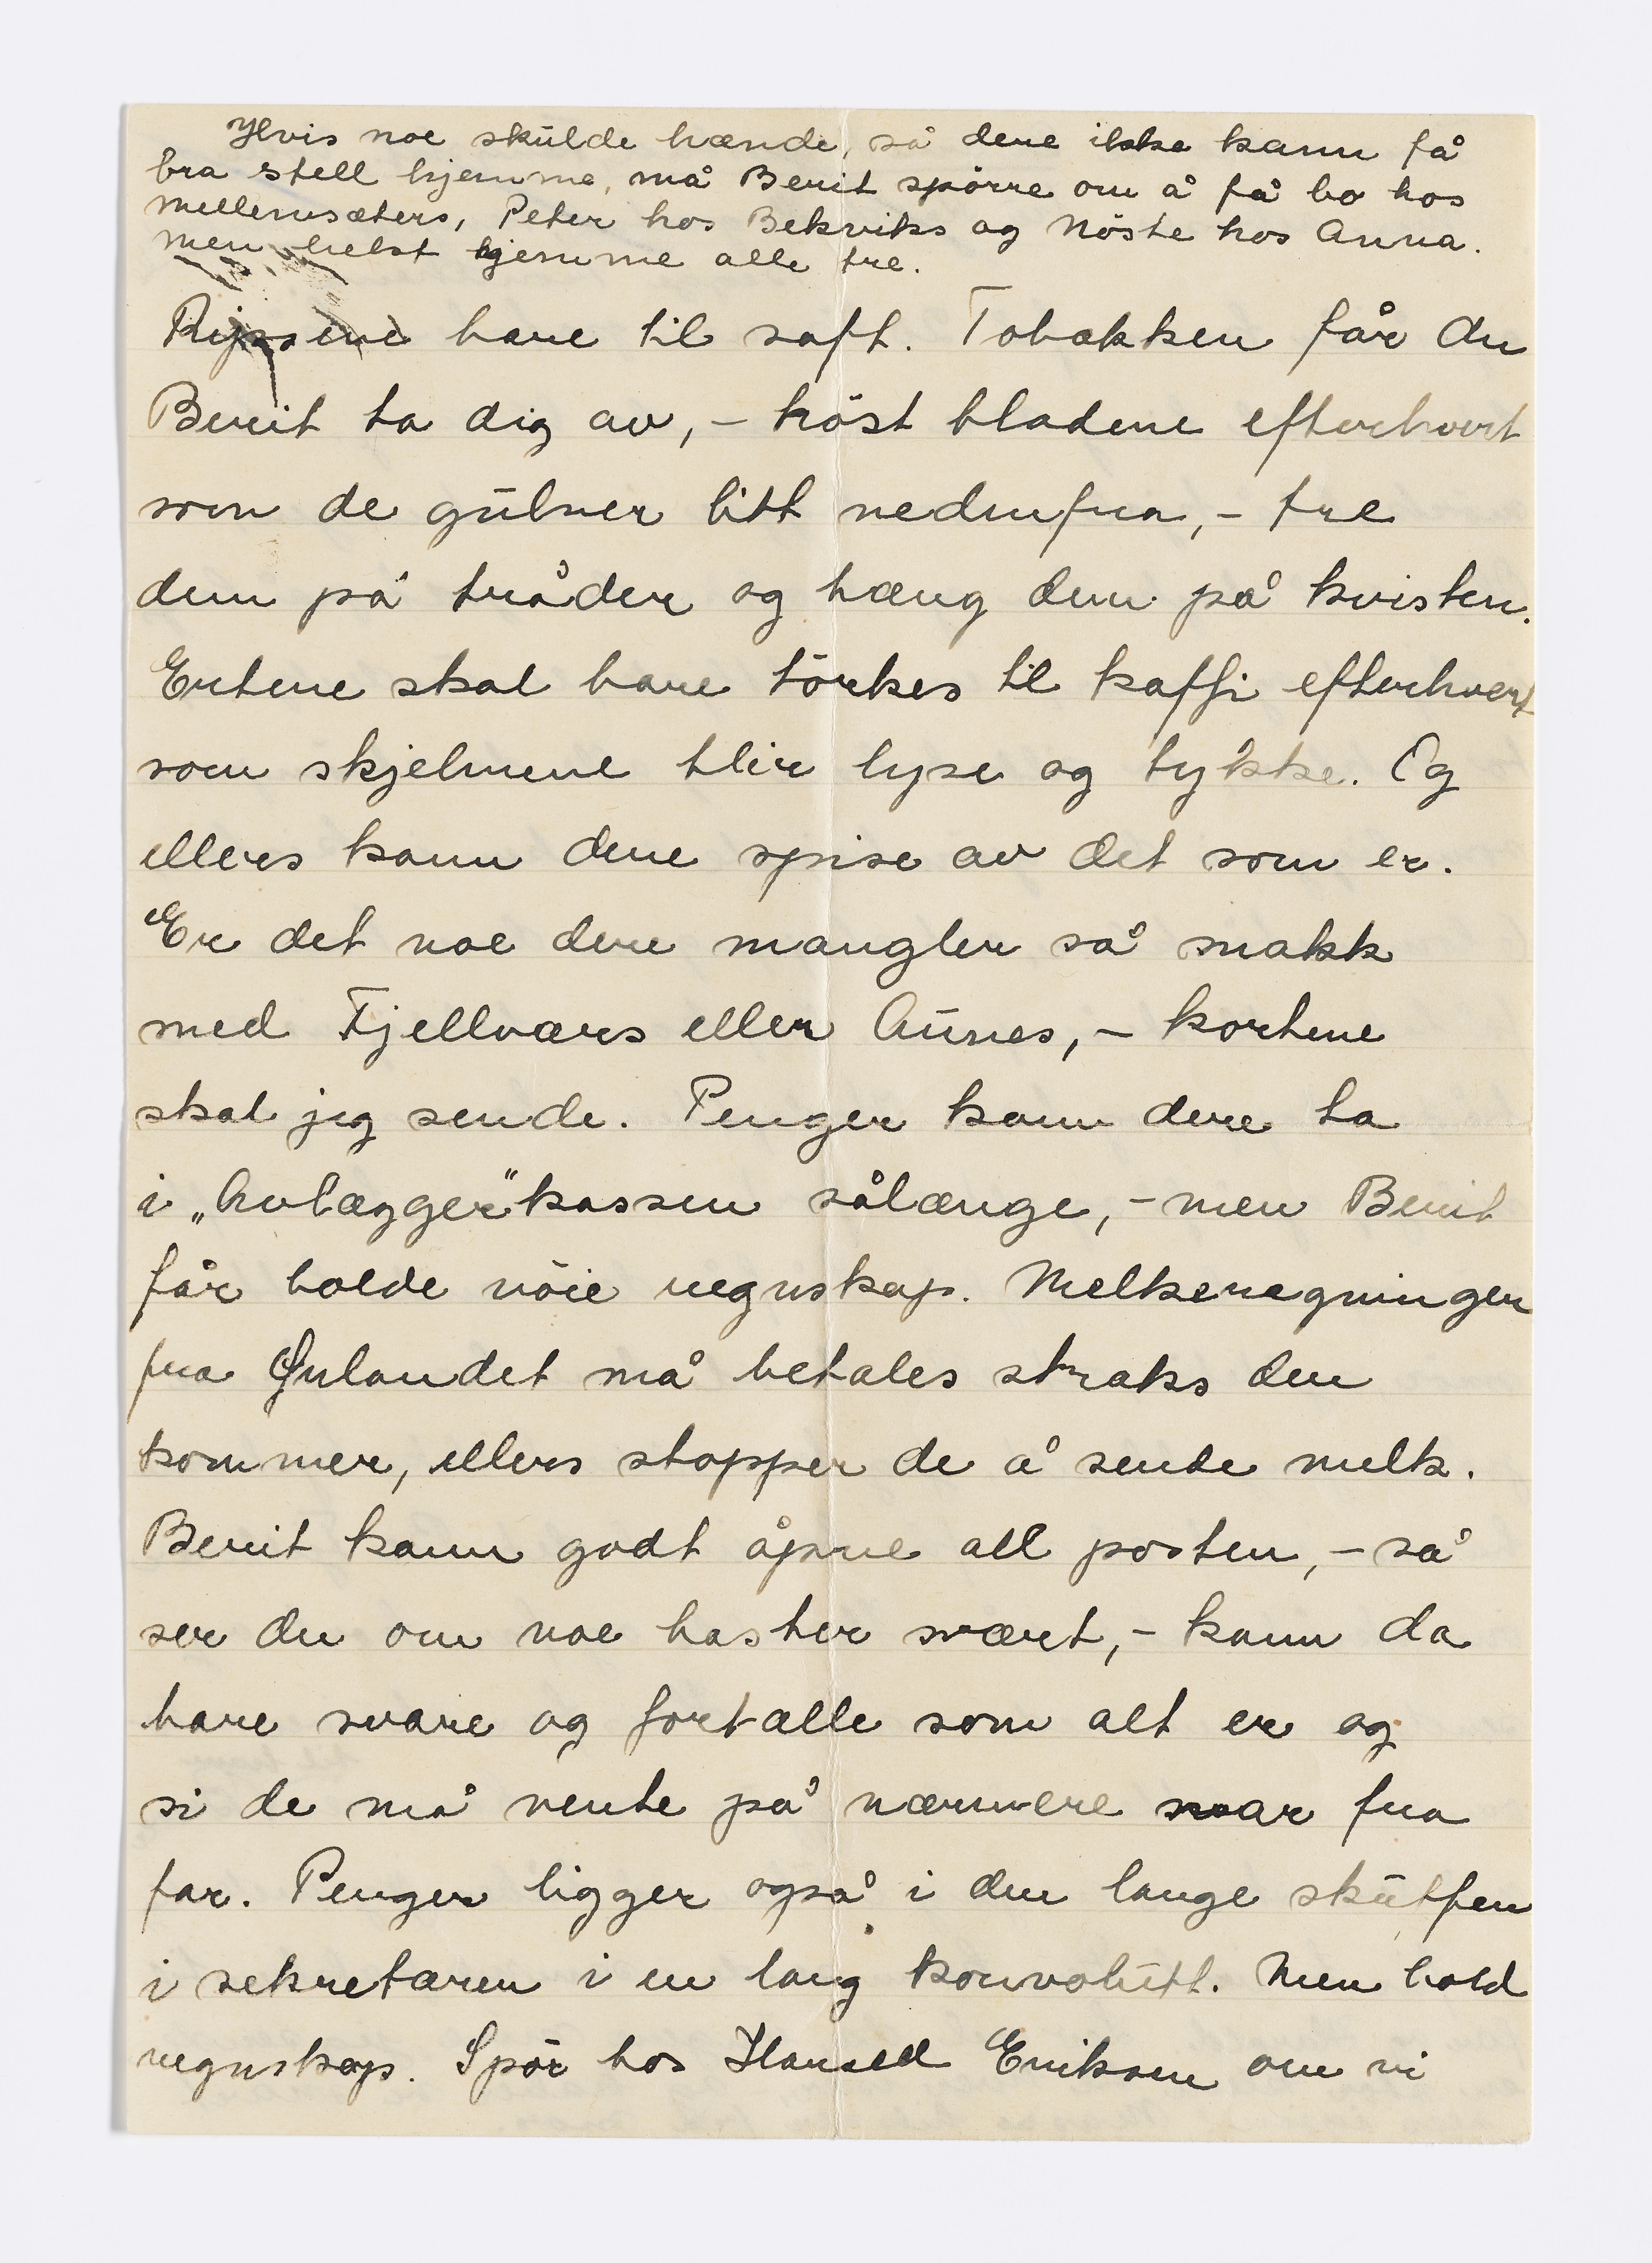 Hvis noe skulde hænde, så dere ikke kann få
bra stell hjemme, må Berit spörre om å få bo hos
Mellemsæters, Peter hos Bekviks og Nöste hos Anna.
men helst hjemme alle tre.
Ripsene bare til saft. Tobakken får du
Berit ta dig av, – höst bladene efterhvert
som de gulner litt nedenfra, – tre
dem på tråder og hæng dem på kvisten.
Ertene skal bare törkes til kaffi efterhvert
som skjelmene blir lyse og tykke. Og
ellers kann dere spise av det som er.
Er det noe dere mangler så snakk
med Fjellværs eller Aunes, – kortene
skal jeg sende. Penger kann dere ta
i „Avlægger"kassen sålænge, – men Berit
får holde nöie regnskap. Melkeregninger
fra Ørlandet må betales straks den
kommer, ellers stopper de å sende melk.
Berit kann godt åpne all posten, – så
ser du om noe haster svært, – kann da
bare svare og fortælle som alt er og
si de må vente på nærmere svar fra
far. Penger ligger også i den lange skuffen
i sekretæren i en lang konvolutt. Men hold
regnskap. Spör hos Harald Eriksen om vi